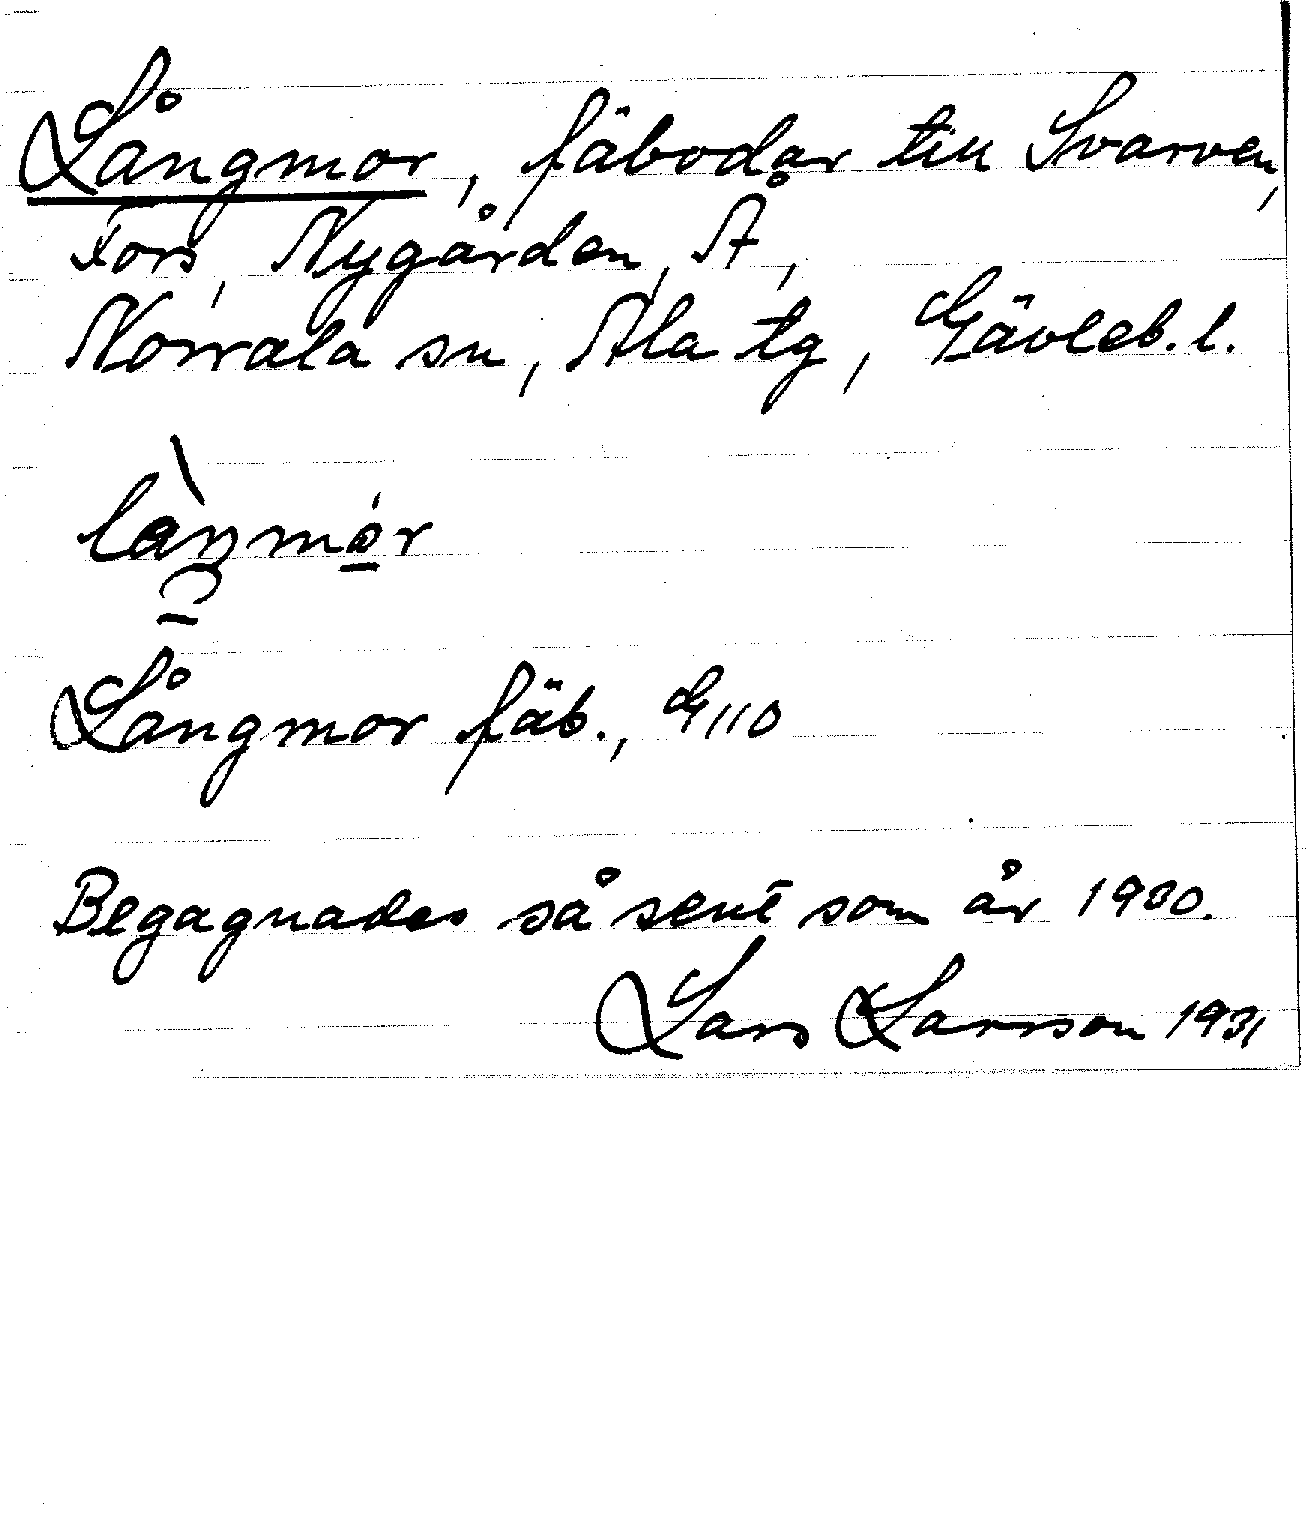 Långmor, fäbodar till Svarven,
Fors, Nygården, Å,
Norrala sn, Ala tg, Gävleb. l.
Långmor fäb., G110
Begagnades så sent som år 1930.
Lars Larsson 1931